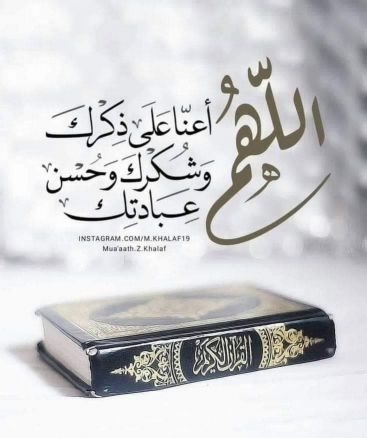 اللّهُم
أعنّا عَلَى ذِكرِك
وَشُكرِك وَحُسن
عِبَادتِك
INSTAGRAM.COM/M.KHALAF19
Mua'aath.Z.Khalaf
القرآن الكريم